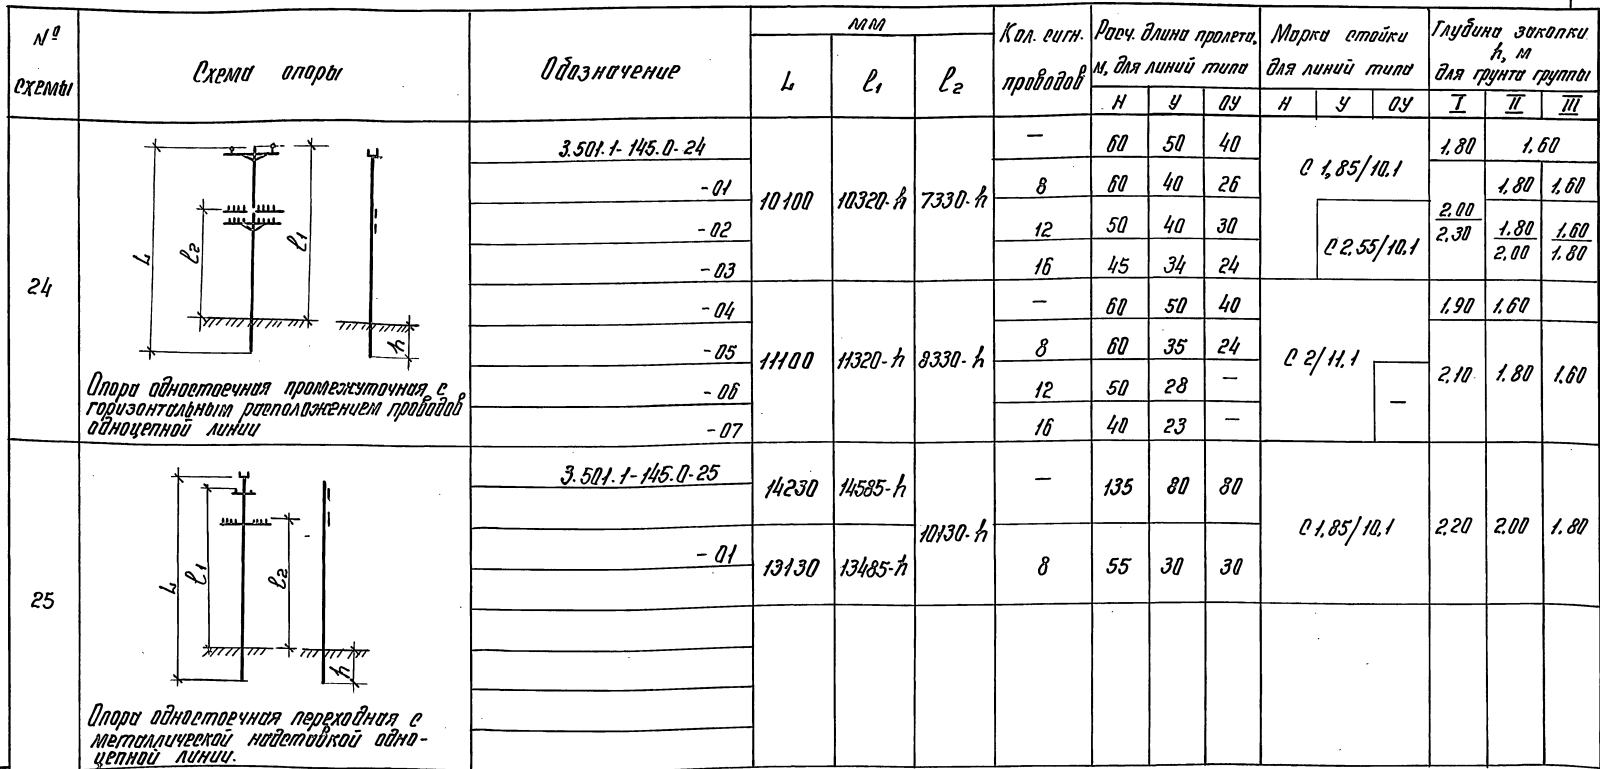 № схемы
Схема опоры
Обозначение
мм
L
ℓ1
ℓ2
Кол. сигн. проводов
Расч. длина пролета, м, для линий типа
Н У ОУ
Марка стойки для линий типа
Н У ОУ
Глубина закопки h, м для грунта группы
I II III
24
L
ℓ2
ℓ1
h
Опора одностоечная промежуточная с
горизонтальным расположением проводов
одноцепной линии
3.501.1-145.0-24 — 60 50 40 1,80 1.60
-01 8 60 40 26 1,80 1,60
10100 10320-h 7330-h
С 1,85/10.1
-02 12 50 40 30
2,00
2,30
1.80
2,00
1.60
1.80
С 2,55/10.1
-03 16 45 34 24
-04 — 60 50 40 1,90 1.60
-05 8 60 35 24
11100 11320-h 8330-h
С 2/11.1
2,10 1.80 1.60
-06 12 50 28 — —
-07 16 40 23 —
25
L
ℓ1
ℓ2
h
Опора одностоечная переходная с
металлической надставкой одно-
цепной линии.
3.501.1-145.0-25 14230 14585-h — 135 80 80
10130-h С 1,85/10,1 2,20 2,00 1.80
-01 13130 13485-h 8 55 30 30